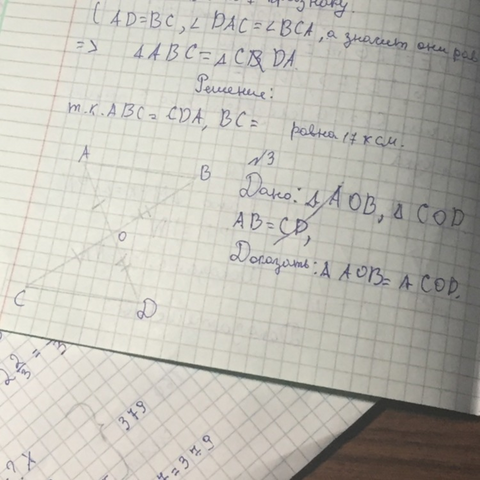 ( AD=BC, ∠ DAC=∠BCA, а значит они рав
=> Δ ABC = Δ CDA
Решение:
т.к. ABC = CDA, BC = равна 17 см.
№3
A
B
O
C
D
Дано: Δ AOB, Δ COD
AB=CD,
Доказать: Δ AOB = Δ COD.
379
= 379
? X